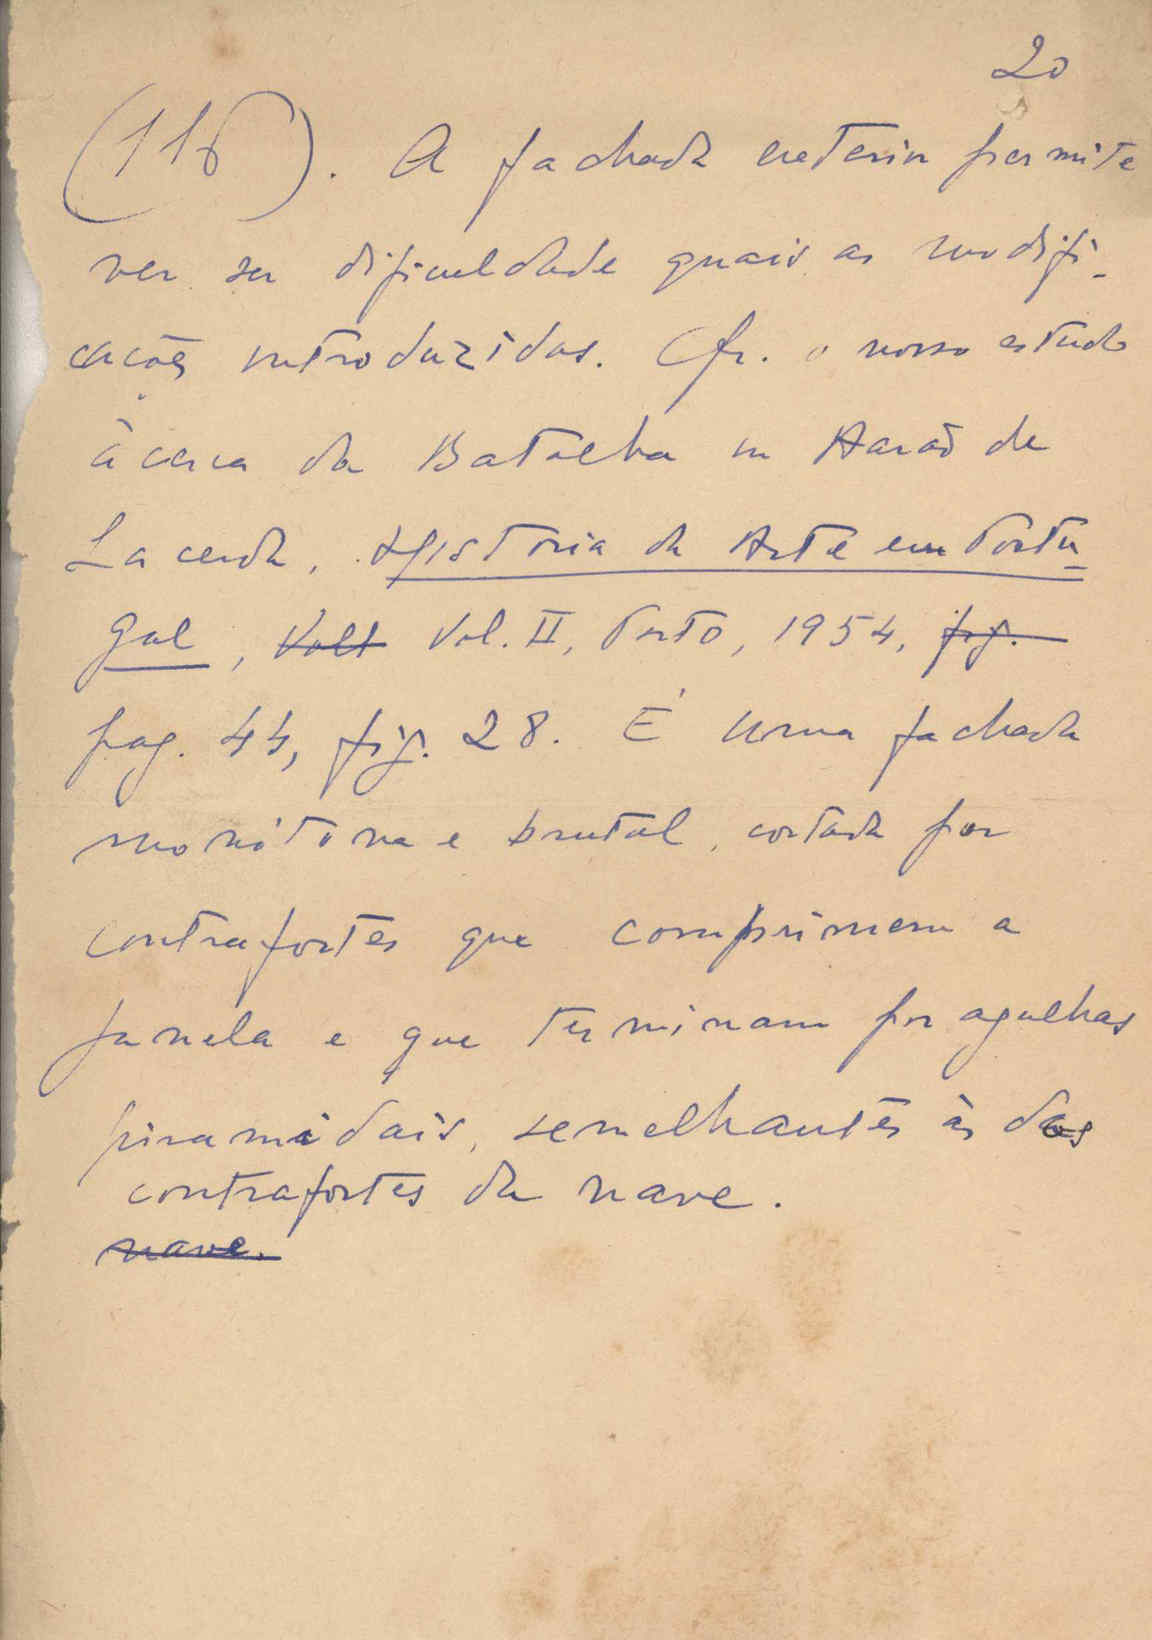 20
(116). A fachada exterior permite
ver sem dificuldade quais as modifi-
cacões introduzidas. Cfr. o nosso estudo
àcerca da Batalha in Aarão de
Lacerda, História da Arte em Portu-
gal, Volt Vol. II, Porto, 1954, fig.
pag. 44, fig. 28. É uma fachada
monótona e brutal, cortada por
contrafortes que comprimem a
janela e que terminam por agulhas
piramidais, semelhantes às dos
contrafortes da nave.
nave.